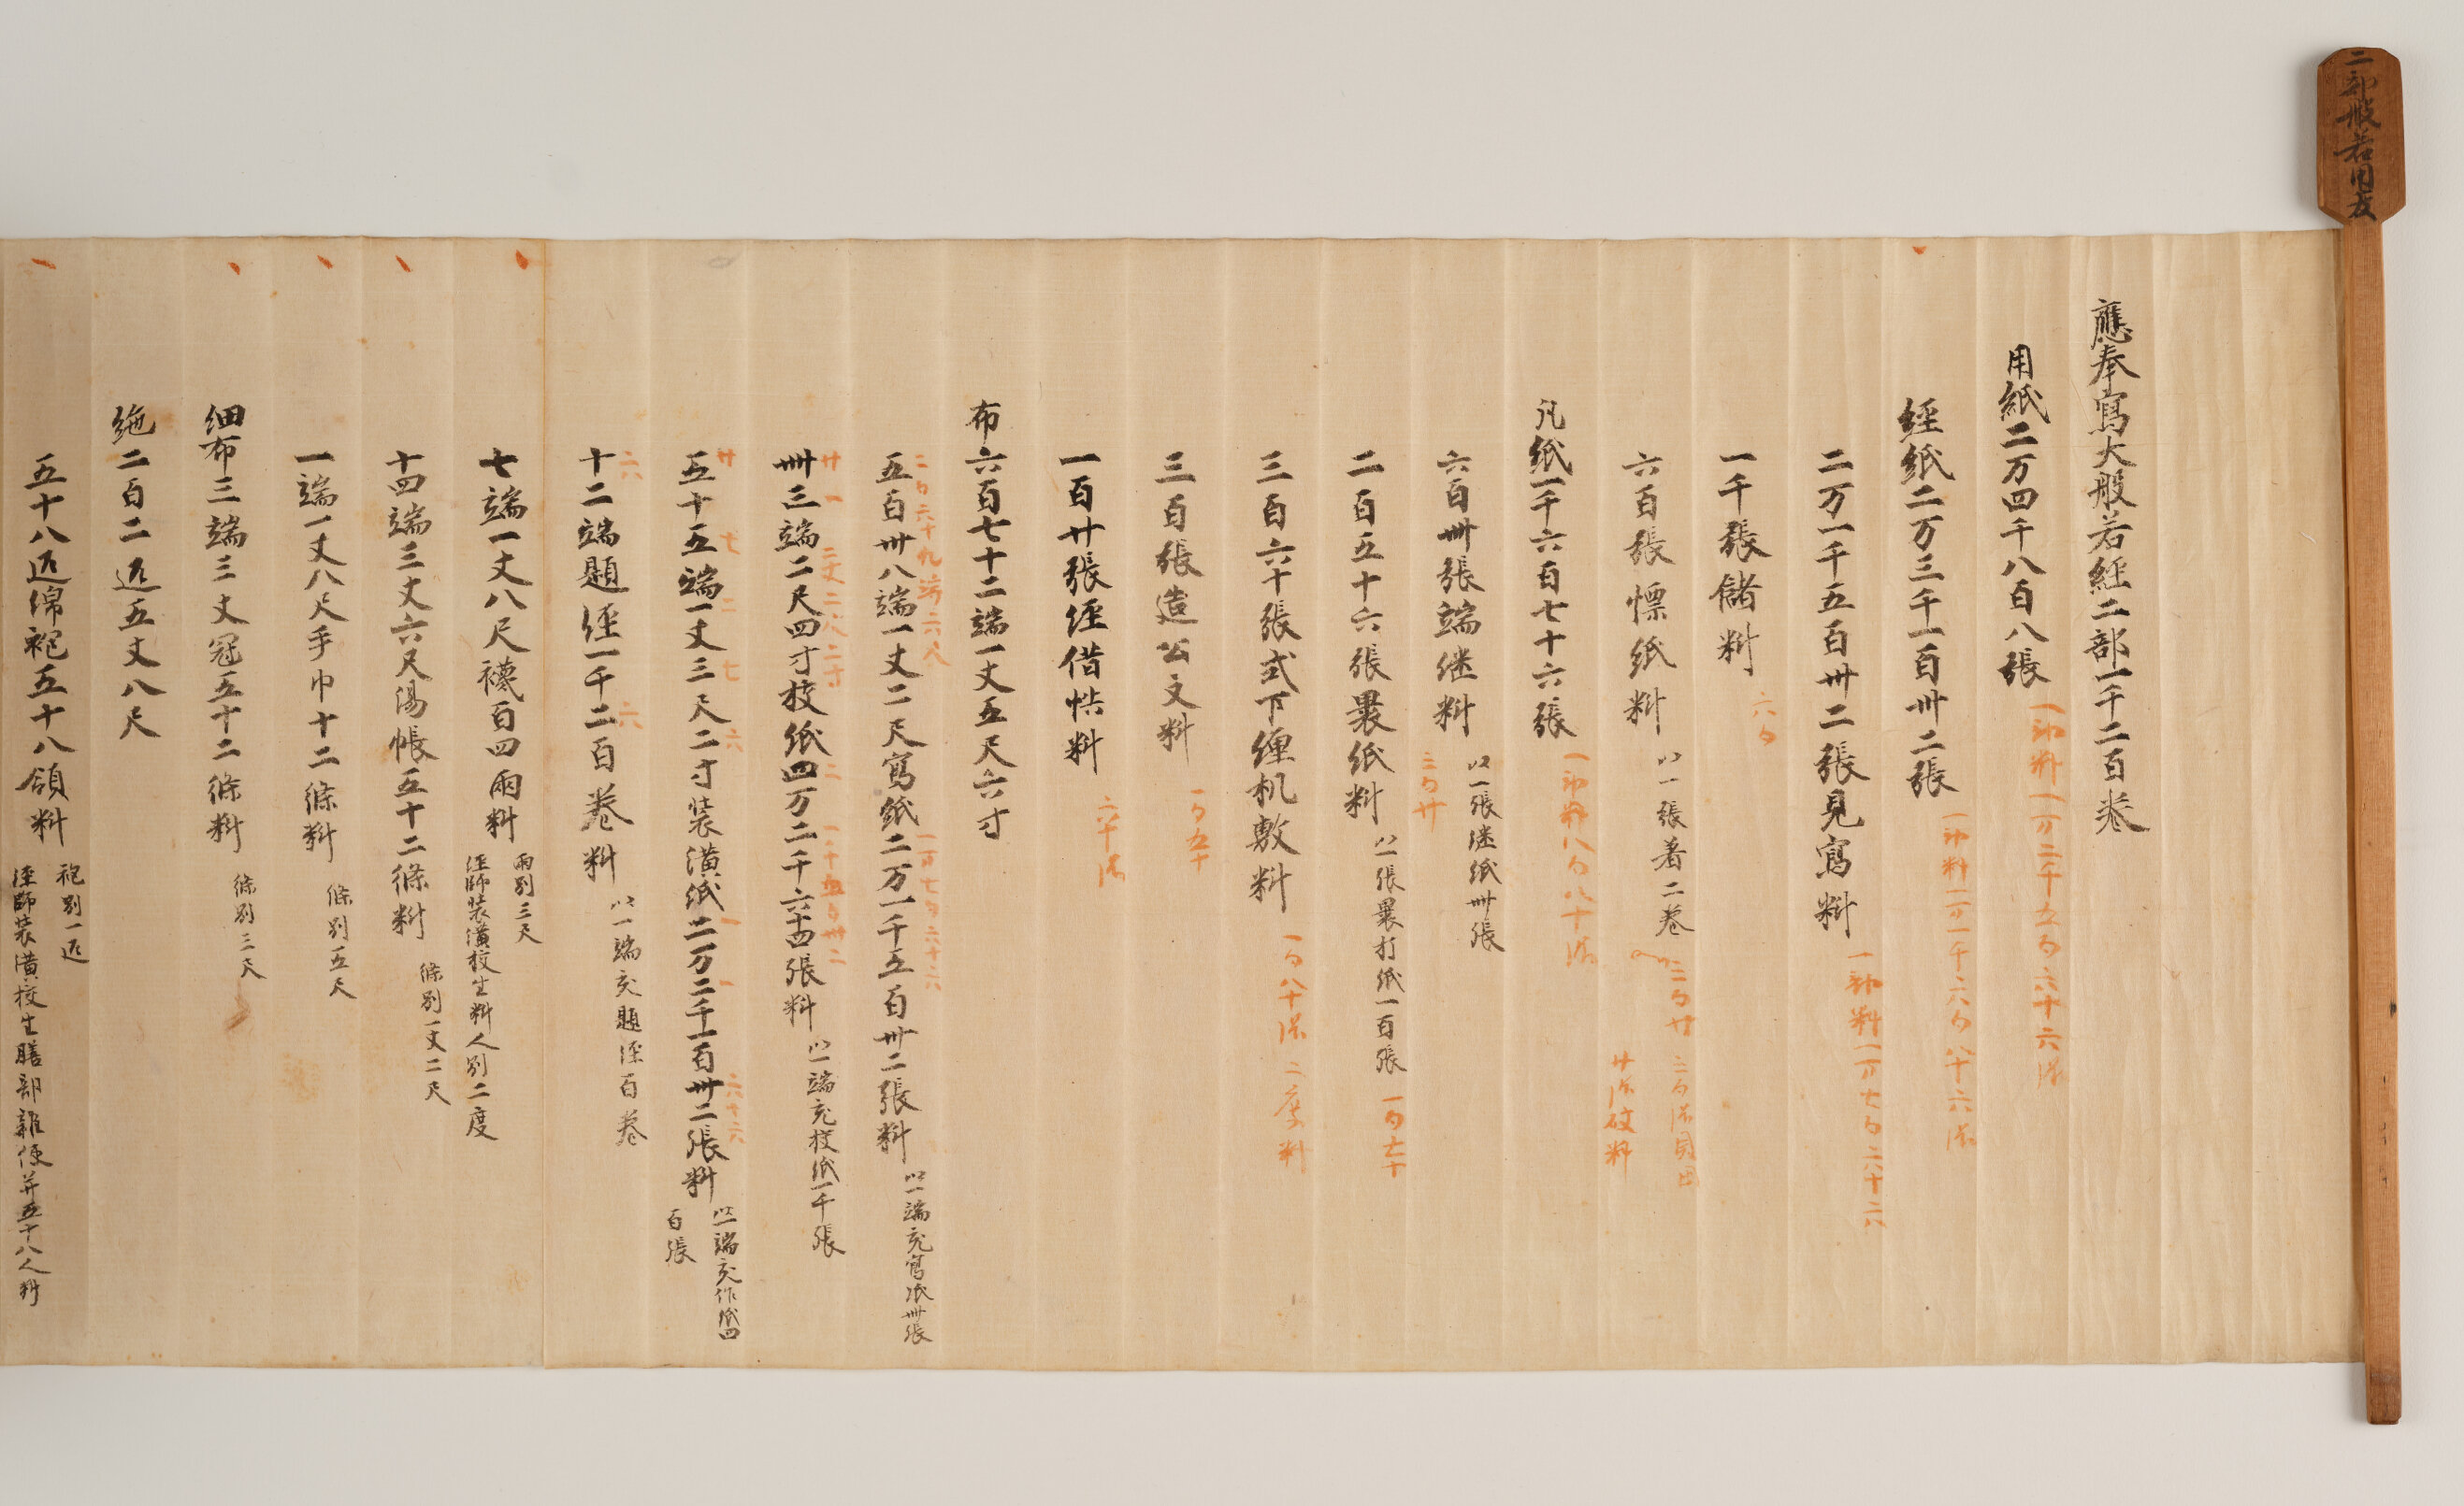 二部般若用度
應奉寫大般若経二部一千二百巻
用紙二万四千八百八張 一部料一万二千五百六十六張
経紙二万三千一百卅二張 一部料一万一千六百八十六張
二万一千五百卅二張見寫料 一部料一万七百六十六
一千張儲料 六百
六百張慓紙料 以一張著二巻 三百廿
廿張破料
凡紙一千六百七十六張 一部料八百八十張
六百卌張端継料 以一張継紙卌張 三百廿
二百五十六張褁紙料 以一張褁打紙一百張 一百七十
三百六十張式下纏机敷料 一百八十張 二度料
三百張造公文料 一百五十
一百廿張経借帙料 六十張
布六百七十二端一丈五尺六寸
五百卅八端一丈二尺寫紙二万一千五百卅二張料 以一端充寫紙卌張
二百六十九端六尺 一万七百六十六
卌三端二尺四寸校紙四万二千六十四張料 以一端充校紙一千張
五十五端一丈三尺二寸装潢紙二万二千一百卅二張料 以一端充作紙四百張
十二端題経一千二百巻料 以一端充題経百巻
七端一丈八尺襪百四兩料 兩別三尺
経師装潢校生料人別二度
十四端三丈六尺湯帳五十二條料 條別一丈二尺
一端一丈八尺手巾十二條料 條別五尺
細布三端三丈冠五十二條料 條別三尺
絁二百二疋五丈八尺
五十八疋綿袍五十八領料 袍別一疋
経師装潢校生膳部雜使并五十八人料